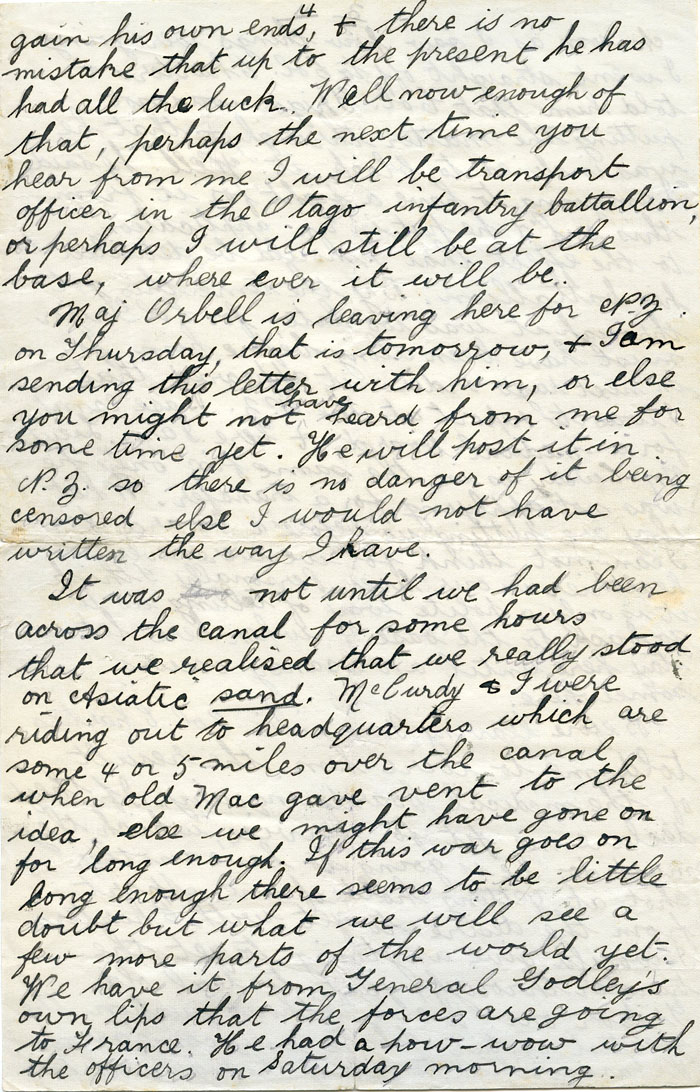 gain his own ends,⁴ & there is no
mistake that up to the present he has
had all the luck. Well now enough of
that, perhaps the next time you
hear from me I will be transport
officer in the Otago infantry battallion,
or perhaps I will still be at the
base, where ever it will be.
Maj Orbell is leaving here for N.Z.
on Thursday, that is tomorrow, & I am
sending this letter with him, or else
you might not have heard from me for
some time yet. He will post it in
N.Z. so there is no danger of it being
censored else I would not have
written the way I have.
It was not until we had been
across the canal for some hours
that we realised that we really stood
on Asiatic sand. McCurdy & I were
riding out to headquarters which are
some 4 or 5 miles over the canal
when old Mac gave vent to the
idea, else we might have gone on
for long enough. If this war goes on
long enough there seems to be little
doubt but what we will see a
few more parts of the world yet.
We have it from General Godley's
own lips that the forces are going
to France. He had a pow-wow with
the officers on Saturday morning.